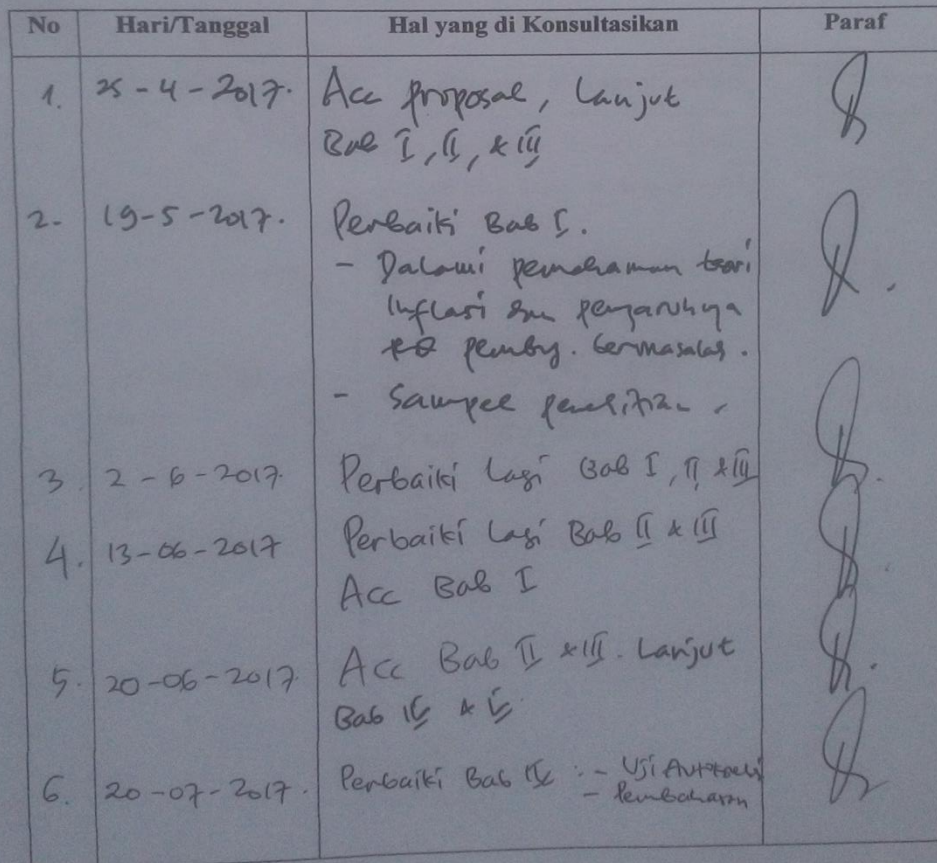 No Hari/Tanggal Hal yang di Konsultasikan Paraf
1. 25-4-2017. Acc proposal, Lanjut
Bab I, II, & III
2. 19-5-2017. Perbaiki Bab I.
- Dalami pemahaman teori
Inflasi dan pengaruhnya
pemby. bermasalah.
- Sampel penelitian.
3 2-6-2017. Perbaiki Lagi Bab I, II & III
4. 13-06-2017 Perbaiki Lagi Bab II & III
Acc Bab I
5. 20-06-2017 Acc Bab II & III. Lanjut
Bab IV & V.
6. 20-07-2017. Perbaiki Bab IV :- Uji
- Pembahasan